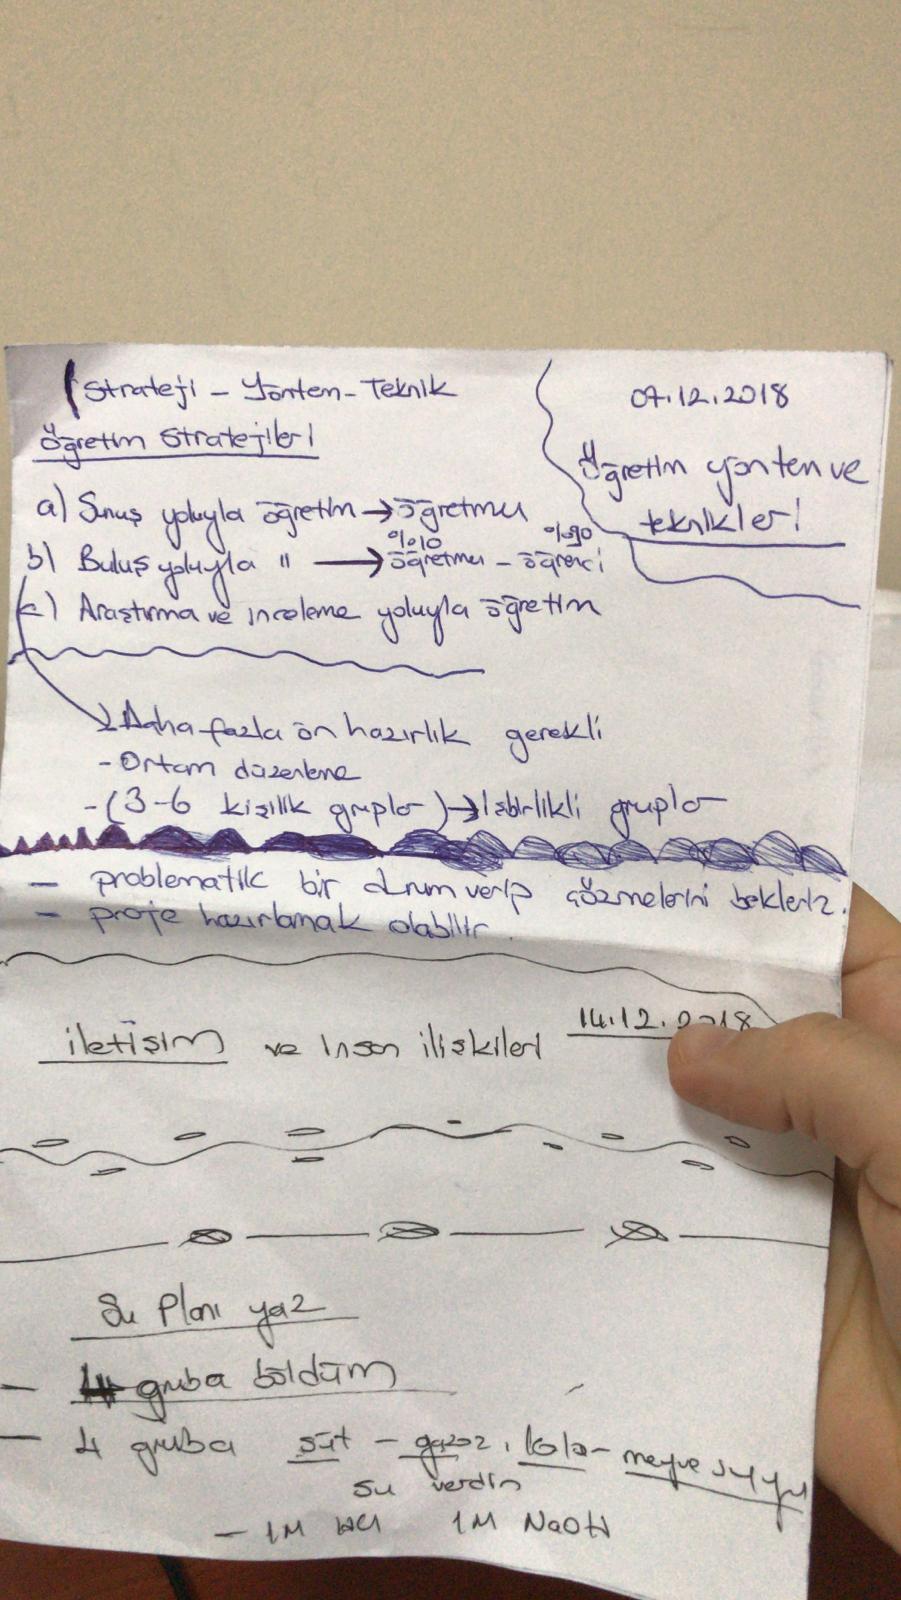 Strateji - Yöntem - Teknik
07.12.2018
Öğretim Stratejileri
Öğretim yöntem ve
teknikleri
a) Sunuş yoluyla öğretim → öğretmen
%10 %90
b) Buluş yoluyla " → öğretmen - öğrenci
c) Araştırma ve inceleme yoluyla öğretim
Daha fazla ön hazırlık gerekli
- Ortam düzenleme
- (3-6 kişilik gruplar) → İşbirlikli gruplar
- problematik bir durum verip çözmelerini bekleriz.
- proje hazırlamak olabilir.
iletişim ve insan ilişkileri 14.12.2018
Su Planı yaz
- gruba böldüm
- 4 gruba süt - gazoz, kola - meyve suyu
su verdin
- 1M HCl 1M NaOH